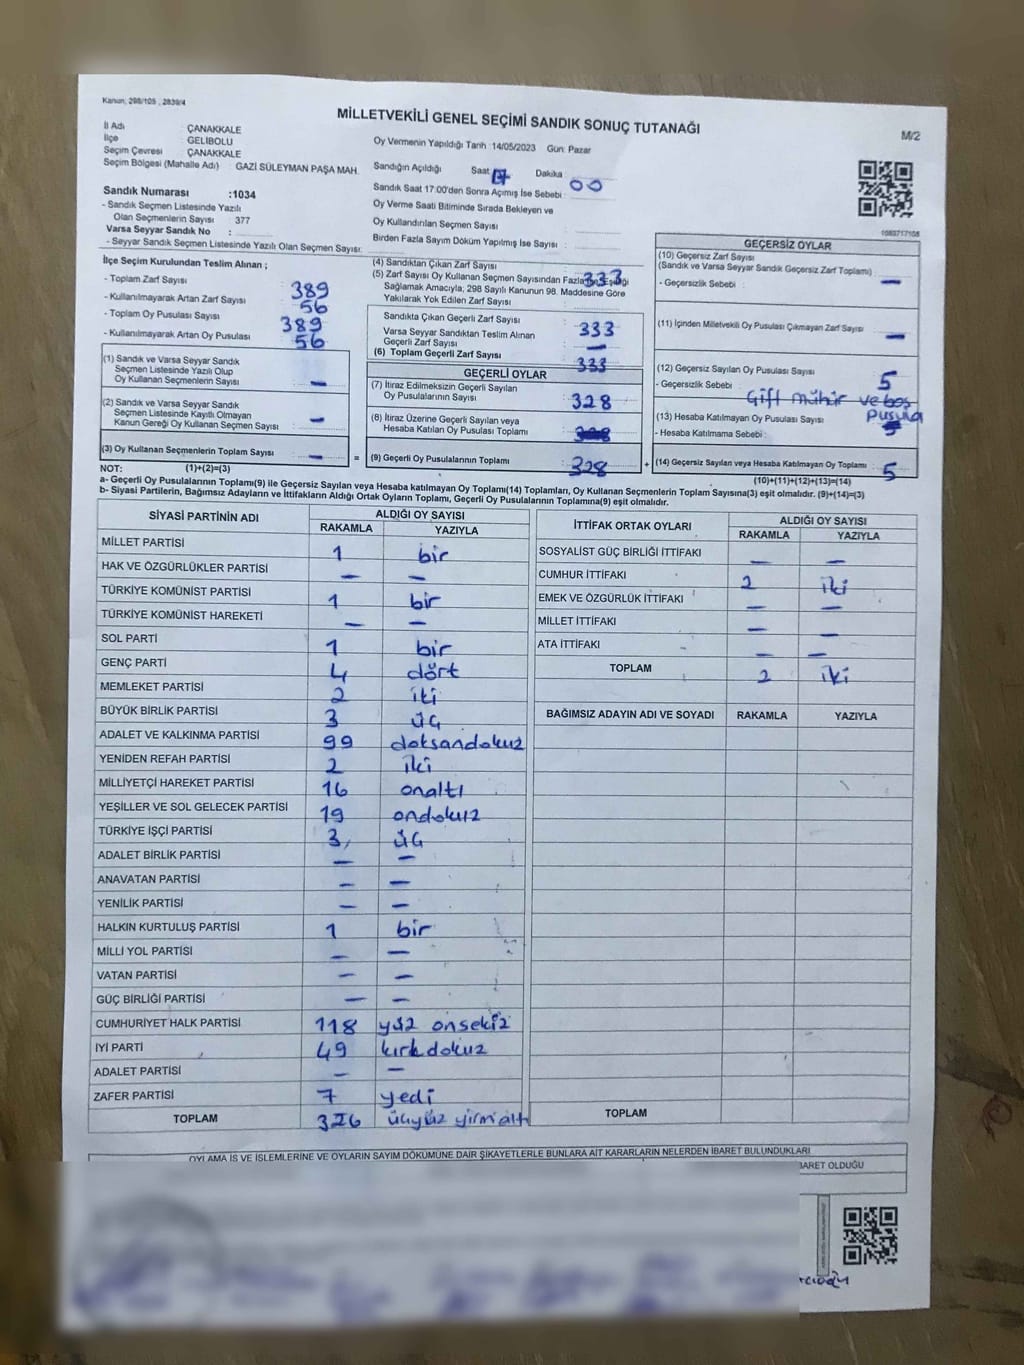 Kanun; 298/105 , 2839/4
MİLLETVEKİLİ GENEL SEÇİMİ SANDIK SONUÇ TUTANAĞI
M/2
İl Adı ÇANAKKALE
İlçe GELİBOLU
Seçim Çevresi ÇANAKKALE
Seçim Bölgesi (Mahalle Adı) : GAZİ SÜLEYMAN PAŞA MAH.
Sandık Numarası :1034
- Sandık Seçmen Listesinde Yazılı
Olan Seçmenlerin Sayısı : 377
Varsa Seyyar Sandık No :
- Seyyar Sandık Seçmen Listesinde Yazılı Olan Seçmen Sayısı:
Oy Vermenin Yapıldığı Tarih :14/05/2023 Gün: Pazar
Sandığın Açıldığı Saat Dakika 00
Sandık Saat 17:00'den Sonra Açılmış İse Sebebi :
Oy Verme Saati Bitiminde Sırada Bekleyen ve
Oy Kullandırılan Seçmen Sayısı
Birden Fazla Sayım Döküm Yapılmış İse Sayısı :
1083717105
İlçe Seçim Kurulundan Teslim Alınan ;
- Toplam Zarf Sayısı 389
- Kullanılmayarak Artan Zarf Sayısı 56
- Toplam Oy Pusulası Sayısı 389
- Kullanılmayarak Artan Oy Pusulası 56
(1) Sandık ve Varsa Seyyar Sandık
Seçmen Listesinde Yazılı Olup
Oy Kullanan Seçmenlerin Sayısı : —
(2) Sandık ve Varsa Seyyar Sandık
Seçmen Listesinde Kayıtlı Olmayan
Kanun Gereği Oy Kullanan Seçmen Sayısı : —
(3) Oy Kullanan Seçmenlerin Toplam Sayısı : — =
(4) Sandıktan Çıkan Zarf Sayısı 333
(5) Zarf Sayısı Oy Kullanan Seçmen Sayısından Fazla İse, Eşitliği
Sağlamak Amacıyla; 298 Sayılı Kanunun 98. Maddesine Göre
Yakılarak Yok Edilen Zarf Sayısı :
Sandıkta Çıkan Geçerli Zarf Sayısı 333
Varsa Seyyar Sandıktan Teslim Alınan
Geçerli Zarf Sayısı —
(6) Toplam Geçerli Zarf Sayısı 333
GEÇERLİ OYLAR
(7) İtiraz Edilmeksizin Geçerli Sayılan
Oy Pusulalarının Sayısı : 328
(8) İtiraz Üzerine Geçerli Sayılan veya
Hesaba Katılan Oy Pusulası Toplamı
(9) Geçerli Oy Pusulalarının Toplamı : 328 +
GEÇERSİZ OYLAR
(10) Geçersiz Zarf Sayısı
(Sandık ve Varsa Seyyar Sandık Geçersiz Zarf Toplamı) : —
- Geçersizlik Sebebi :
(11) İçinden Milletvekili Oy Pusulası Çıkmayan Zarf Sayısı : —
(12) Geçersiz Sayılan Oy Pusulası Sayısı 5
- Geçersizlik Sebebi : Çift mühür ve boş pusula
(13) Hesaba Katılmayan Oy Pusulası Sayısı
- Hesaba Katılmama Sebebi :
(14) Geçersiz Sayılan veya Hesaba Katılmayan Oy Toplamı : 5
NOT: (1)+(2)=(3) (10)+(11)+(12)+(13)=(14)
a- Geçerli Oy Pusulalarının Toplamı(9) ile Geçersiz Sayılan veya Hesaba katılmayan Oy Toplamı(14) Toplamları, Oy Kullanan Seçmenlerin Toplam Sayısına(3) eşit olmalıdır. (9)+(14)=(3)
b- Siyasi Partilerin, Bağımsız Adayların ve İttifakların Aldığı Ortak Oyların Toplamı, Geçerli Oy Pusulalarının Toplamına(9) eşit olmalıdır.
SİYASİ PARTİNİN ADI ALDIĞI OY SAYISI
RAKAMLA YAZIYLA
MİLLET PARTİSİ 1 bir
HAK VE ÖZGÜRLÜKLER PARTİSİ — —
TÜRKİYE KOMÜNİST PARTİSİ 1 bir
TÜRKİYE KOMÜNİST HAREKETİ — —
SOL PARTİ 1 bir
GENÇ PARTİ 4 dört
MEMLEKET PARTİSİ 2 iki
BÜYÜK BİRLİK PARTİSİ 3 üç
ADALET VE KALKINMA PARTİSİ 99 doksandokuz
YENİDEN REFAH PARTİSİ 2 iki
MİLLİYETÇİ HAREKET PARTİSİ 16 onaltı
YEŞİLLER VE SOL GELECEK PARTİSİ 19 ondokuz
TÜRKİYE İŞÇİ PARTİSİ 3 üç
ADALET BİRLİK PARTİSİ — —
ANAVATAN PARTİSİ — —
YENİLİK PARTİSİ — —
HALKIN KURTULUŞ PARTİSİ 1 bir
MİLLİ YOL PARTİSİ — —
VATAN PARTİSİ — —
GÜÇ BİRLİĞİ PARTİSİ — —
CUMHURİYET HALK PARTİSİ 118 yüz onsekiz
İYİ PARTİ 49 kırkdokuz
ADALET PARTİSİ — —
ZAFER PARTİSİ 7 yedi
TOPLAM 326 üçyüz yirmialtı
İTTİFAK ORTAK OYLARI ALDIĞI OY SAYISI
RAKAMLA YAZIYLA
SOSYALİST GÜÇ BİRLİĞİ İTTİFAKI — —
CUMHUR İTTİFAKI 2 iki
EMEK VE ÖZGÜRLÜK İTTİFAKI — —
MİLLET İTTİFAKI — —
ATA İTTİFAKI — —
TOPLAM 2 iki
BAĞIMSIZ ADAYIN ADI VE SOYADI RAKAMLA YAZIYLA
TOPLAM
OYLAMA İŞ VE İŞLEMLERİNE VE OYLARIN SAYIM DÖKÜMÜNE DAİR ŞİKAYETLERLE BUNLARA AİT KARARLARIN NELERDEN İBARET BULUNDUKLARI
BARET OLDUĞU